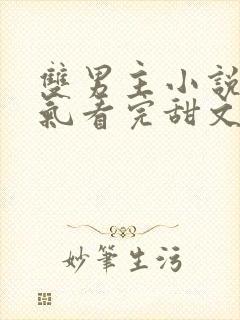 雙男主小說
氣看完甜文
妙筆生污